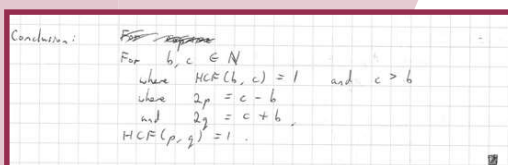 Conclusion:
For b, c ∈ N
where HCF(b, c) = 1 and c > b
where 2p = c - b
and 2q = c + b,
HCF(p, q) = 1.